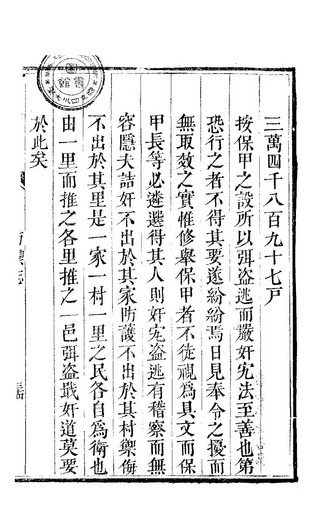 三萬四千八百九十七戸
按保甲之設所以弭盜逃而嚴奸宄法至善也第
恐行之者不得其要遂紛紛焉日見奉令之擾而
無取效之實惟修舉保甲者不徒視爲具文而保
甲長等必遴選得其人則奸宄盜逃有稽察而無
容隱夫詰奸不出於其家防護不出於其村禦侮
不出於其里是一家一村一里之民各自爲衛也
由一里而推之各里推之一邑弭盜戢奸道莫要
於此矣